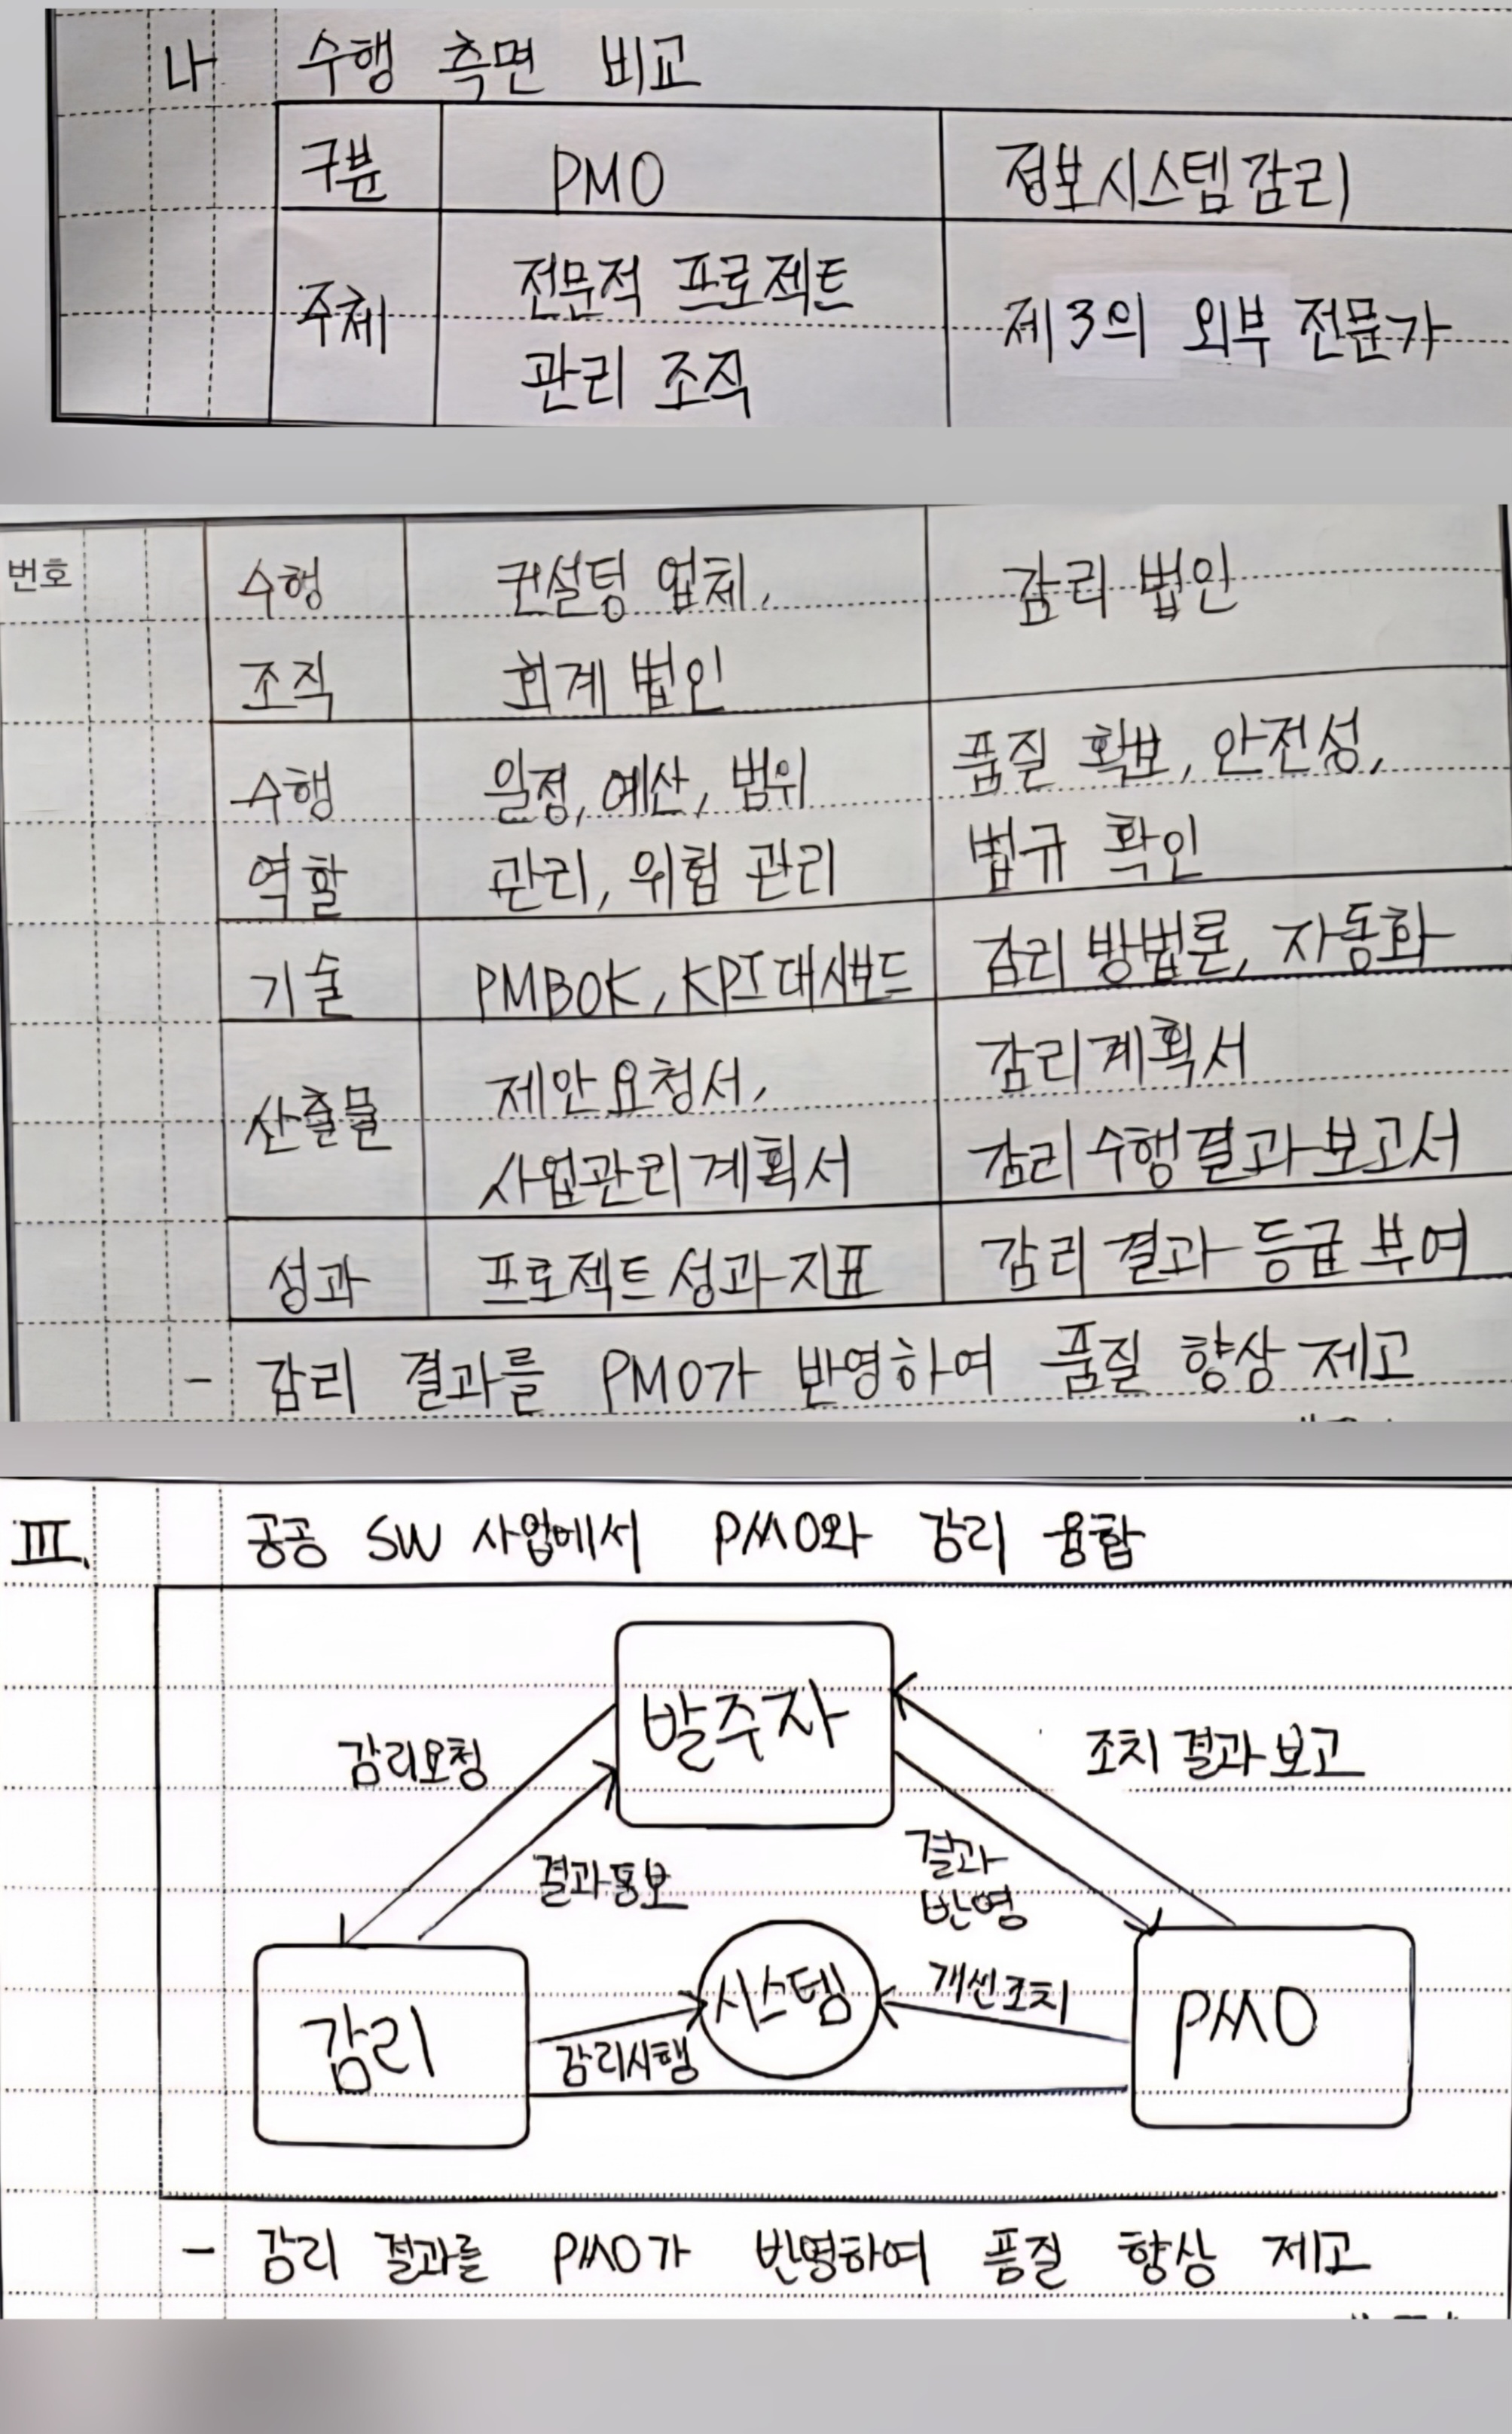 나 수행 측면 비교
구분 PMO 정보시스템감리
주체 전문적 프로젝트 관리 조직 제3의 외부 전문가
번호
수행 조직 컨설팅 업체, 회계 법인 감리 법인
수행 역할 일정, 예산, 범위 관리, 위험 관리 품질 확보, 안전성, 법규 확인
기술 PMBOK, KPI대시보드 감리 방법론, 자동화
산출물 제안요청서, 사업관리계획서 감리계획서 감리수행결과보고서
성과 프로젝트성과지표 감리결과등급부여
- 감리 결과를 PMO가 반영하여 품질 향상 제고
III. 공공 SW 사업에서 PMO와 감리 융합
발주자
감리요청
조치결과보고
결과통보
결과
반영
시스템
개선조치
감리
PMO
감리시행
- 감리 결과를 PMO가 반영하여 품질 향상 제고